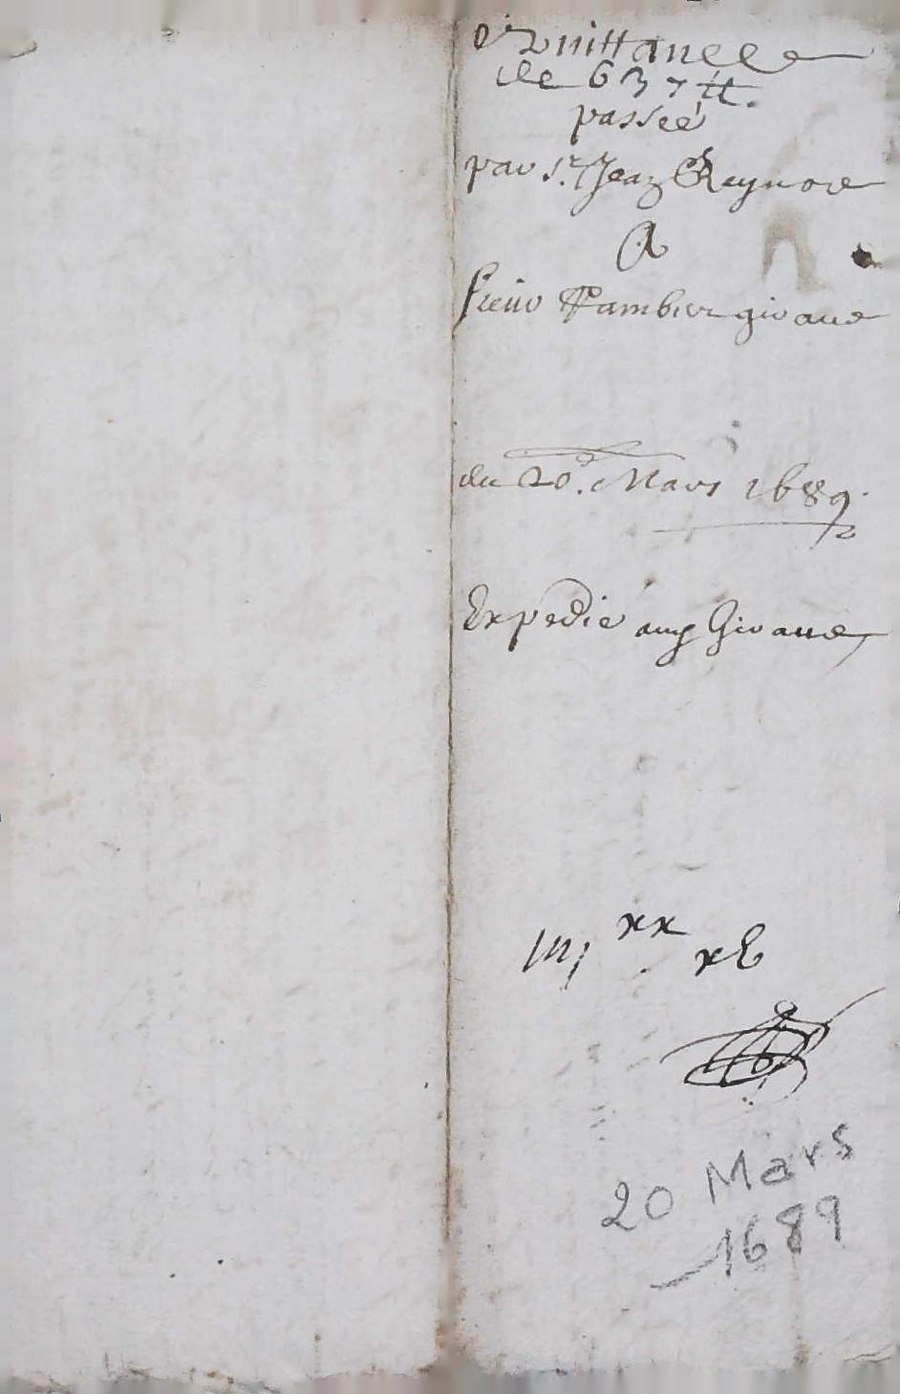 Quittance
de 637 ₶.
passée
par Sr. Jean Reynore
A
sieur Giraue
du 20e. Mars 1689.
Expedie aud Giraue
iiij xx xv
20 Mars
1689